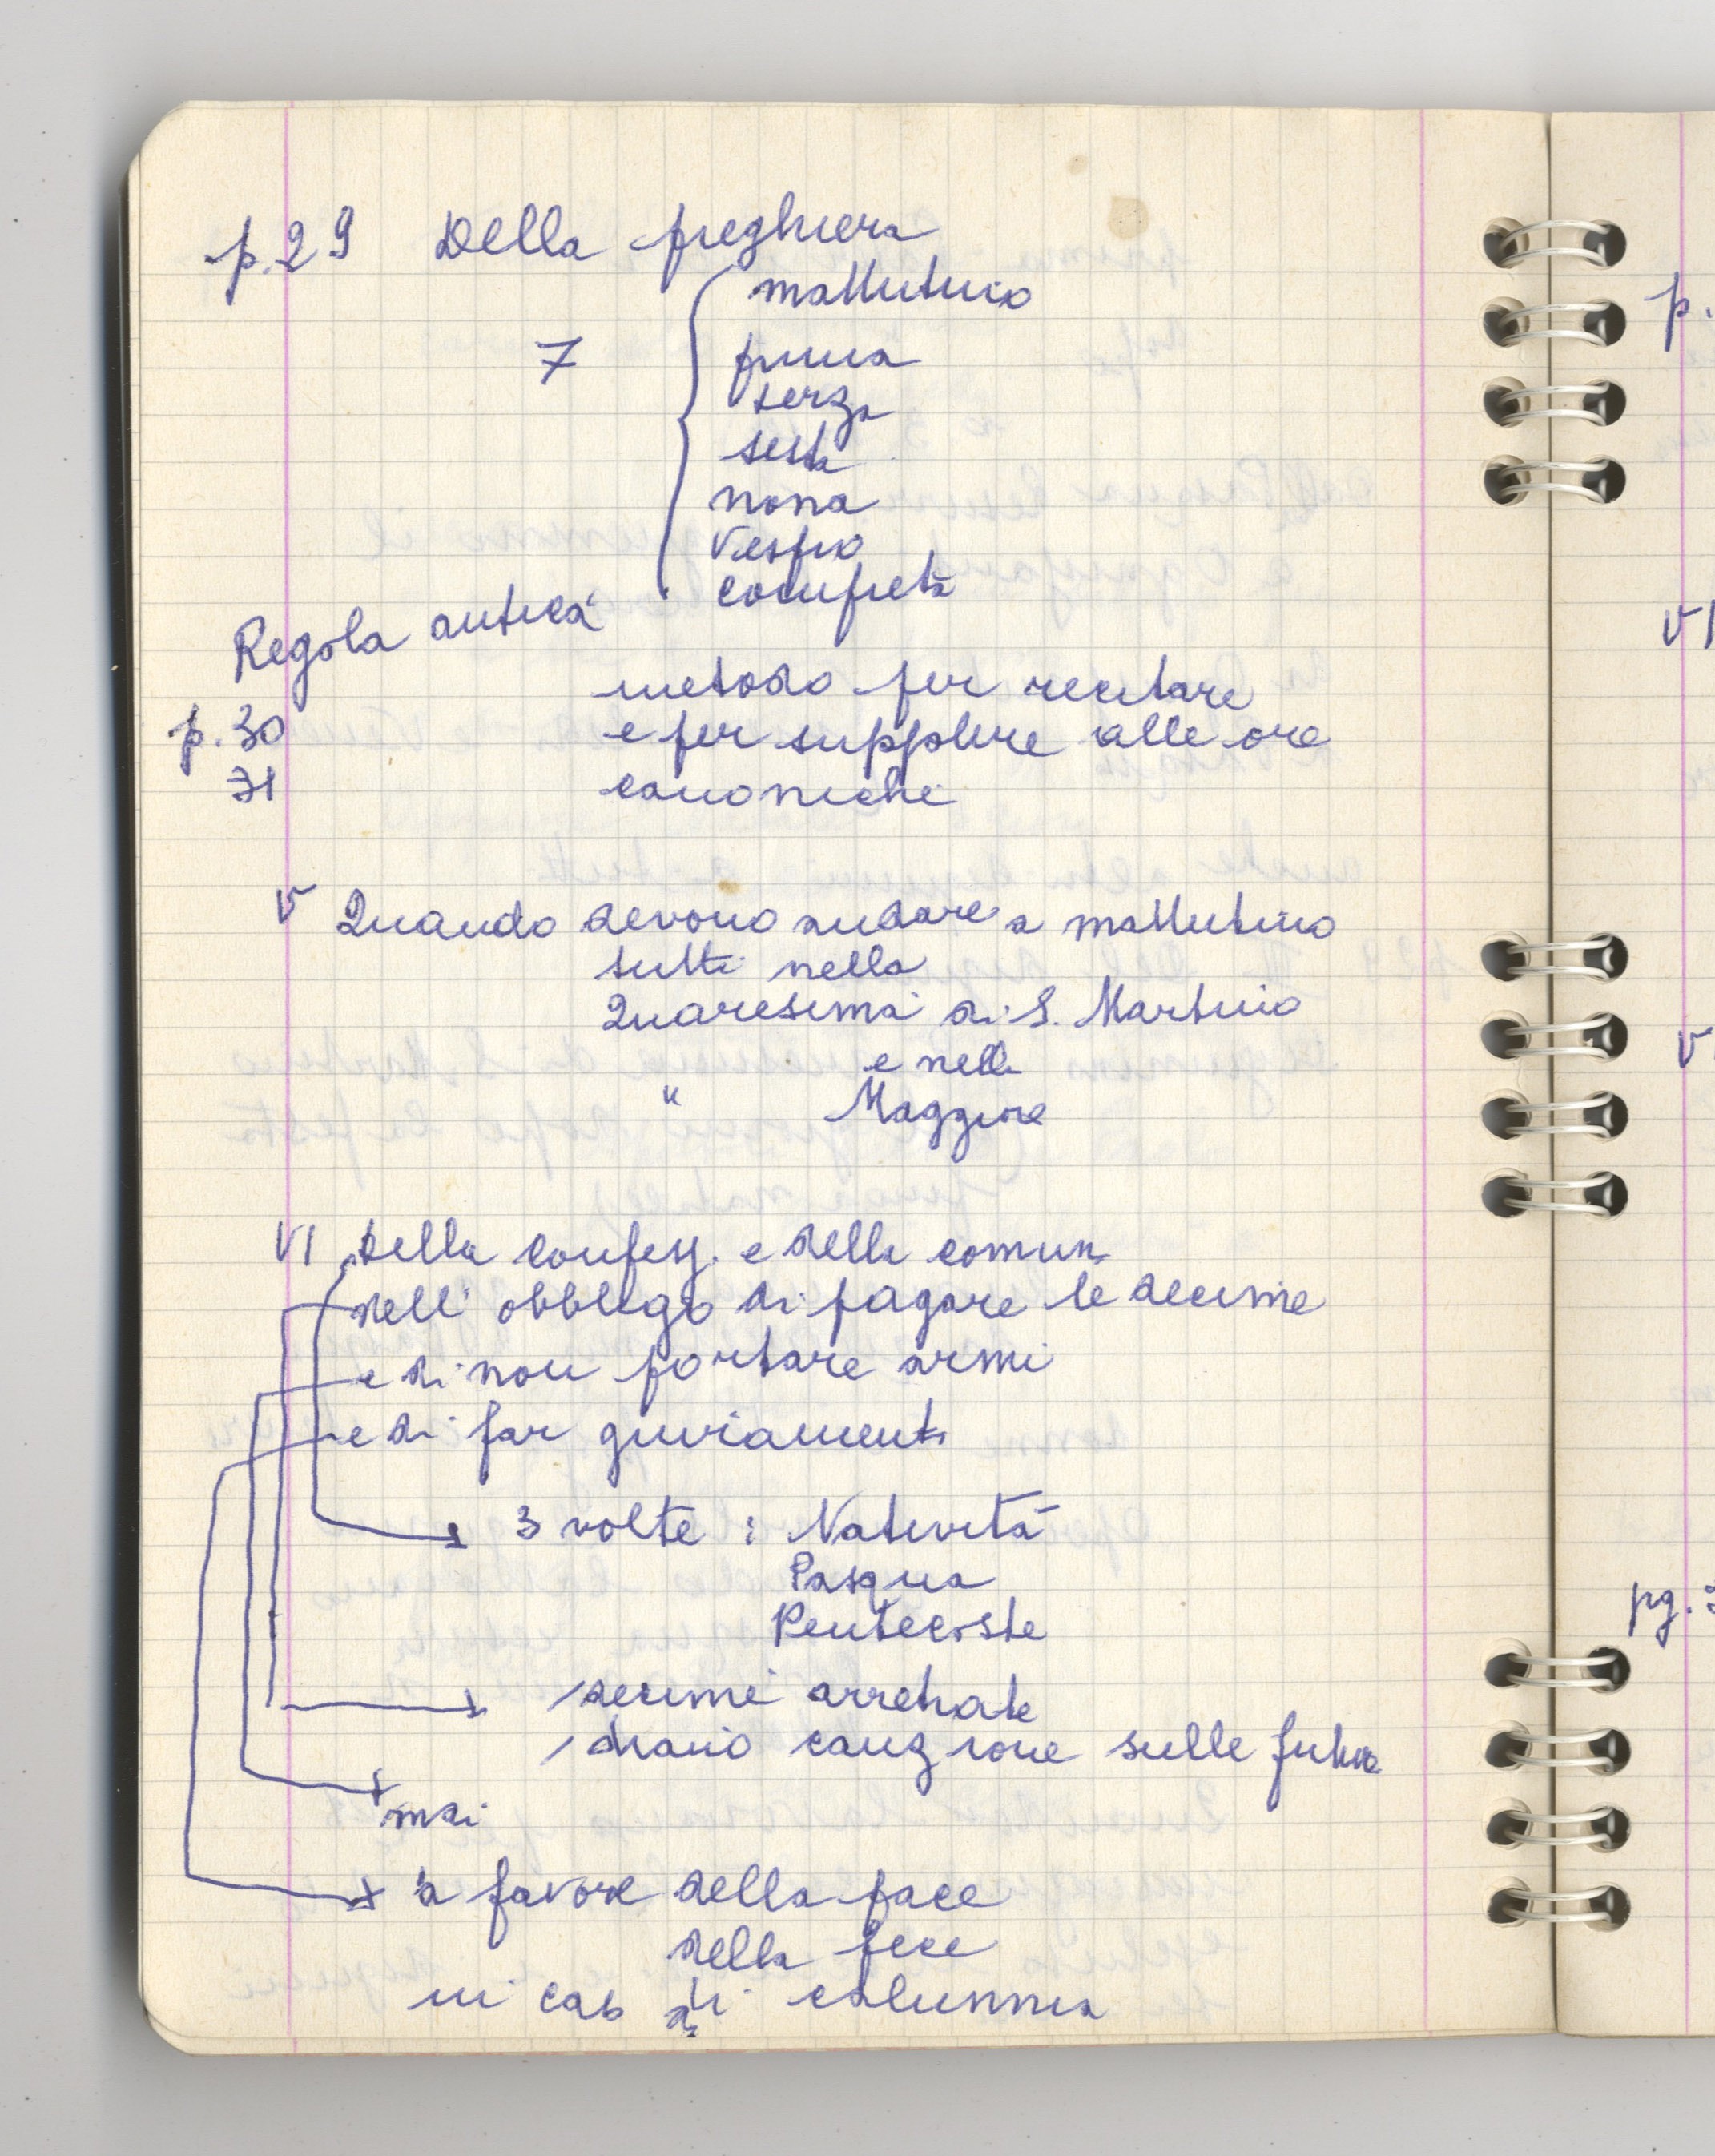 p. 29 Della preghiera
mattutino
7 prima
terza
sesta
nona
Vespro
compieta
Regola antica
metodo per recitare
p. 30 e per supplire alle ore
31 canoniche
V Quando devono andare a mattutino
tutti nella
Quaresima di S. Martino
e nella
" Maggiore
VI Della confess. e della comun.
dell'obbligo di pagare le decime
e di non portare armi
e di far giuramenti
3 volte : Natività
Pasqua
Pentecoste
/ decime arretrate
/ diano cauzione sulle future
mai
a favore della pace
della fede
in caso di calunnia
p.
VI
V
pg. 3